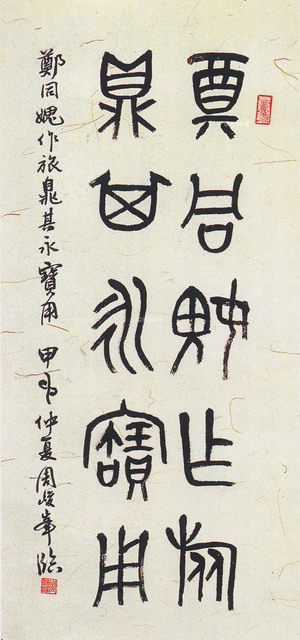 奠同媿乍旅
鼎其永寶用
鄭同媿作旅鼎其永寶用 甲申仲夏周峻峯臨